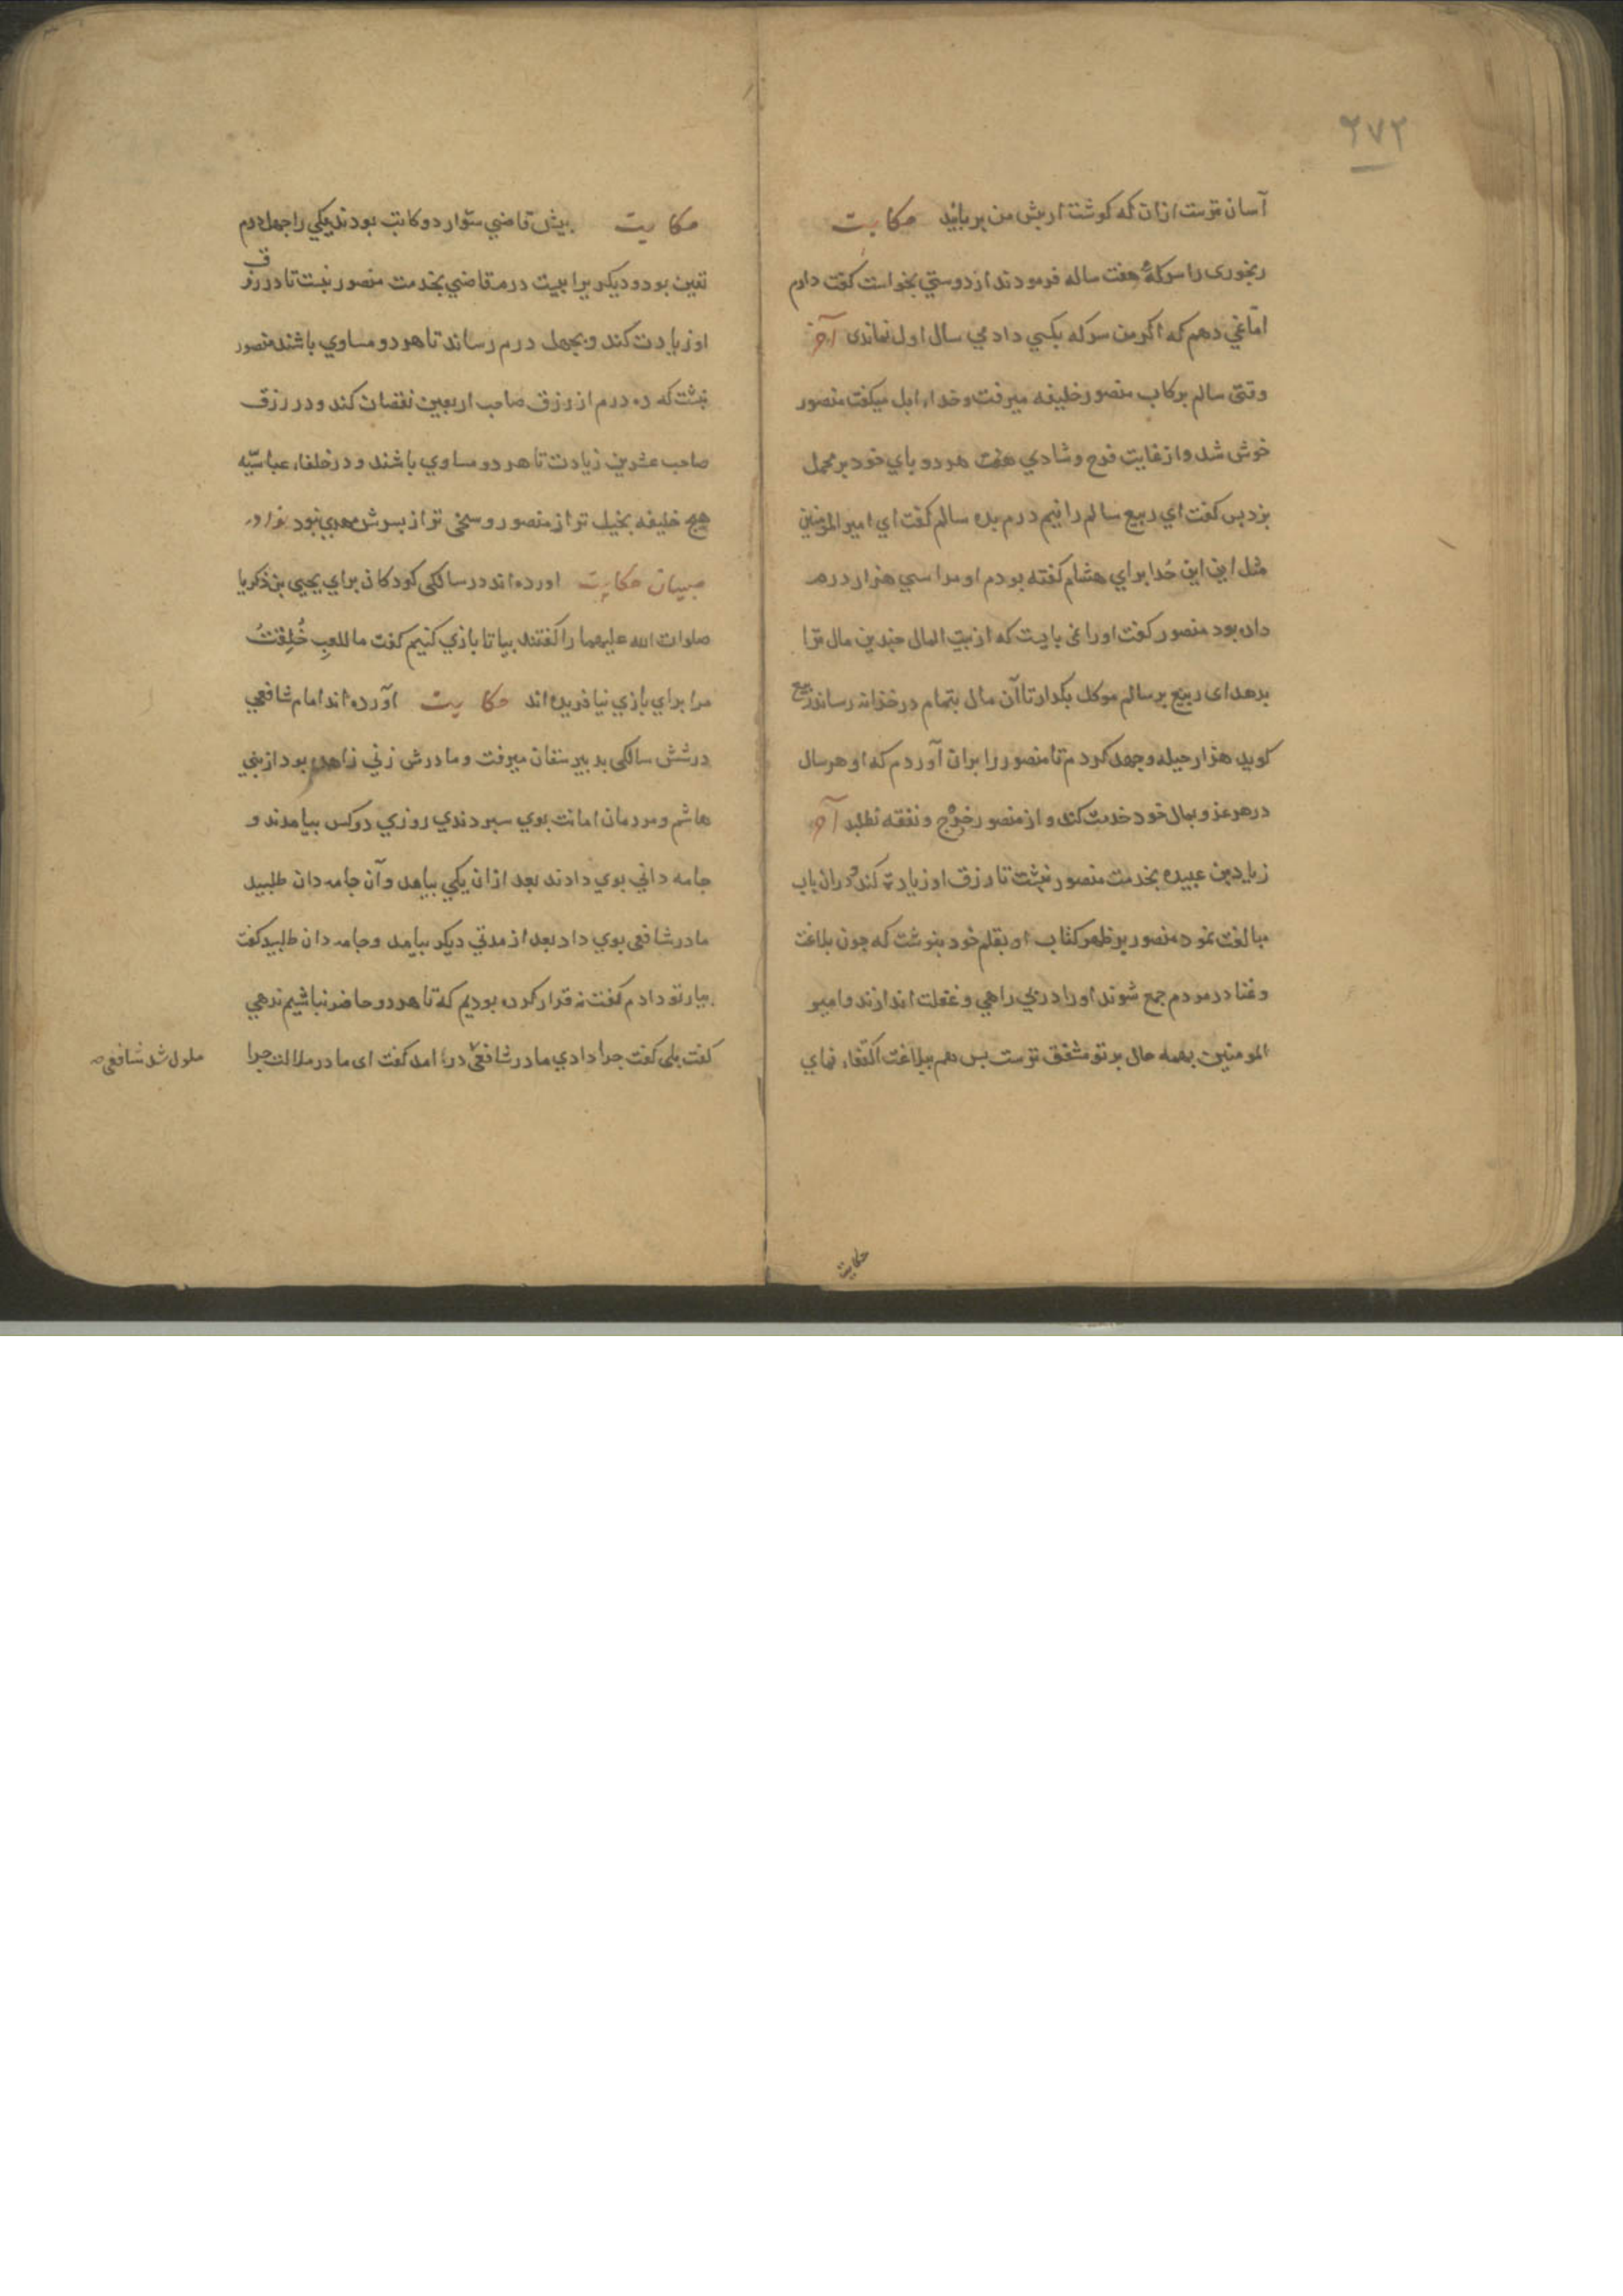 ٢٧٢
آسان ترست ازان که کوشت از بیش من بربایند حکایت
رنجوری را سرکهٔ هفت ساله فرمودند از دوستی بخواست کفت دارم
امّا نمی دهم که اکر من سرکه بکسی دادمی سال اول نماندی آخر
وقتی سالم برکاب منصور خلیفه میرفت و حداء ابل میکفت منصور
خوش شد و از غایت فرح و شادی هر دو بای خود بر محمل
بزد بس کفت ای ربیع سالم را نیم درم بده سالم کفت ای امیر المؤمنین
مثل این این حُدا برای هشام کفته بودم او مرا سی هزار درم
داده بود منصور کفت او را نمی بایست که از بیت المال جندین مال ترا
بدهد ای ربیع بر سالم موکل بکدار تا آن مال بتمام در خزانه رساند ربیع
کوید هزار حیله و جهد کردم تا منصور را بران آوردم که او هر سال
در هر غزو بمال خود خدمت کند و از منصور خرج و نفقه نطلبد آخر
زیاد بن عبیده بخدمت منصور نبشت تا رزق او زیادت کند و دران باب
مبالغت نمود منصور بر ظهر کتاب او بقلم خود بنوشت که جون بلاغت
و غنا در مردم جمع شوند او را در بی راهی و غفلت اندازند و امیر
المومنین بهمه حال بر تو مشفق ترست بس هم ببلاغت اکتفاء نمای
حکایت
حکایت بیش قاضی سوّار دو کاتب بودند یکی را جهل درم
تعین بود و دیکریرا بیست درم قاضی بخدمت منصور نبشت تا در رزق
او زیادت کند و بجهل درم رساند تا هر دو مساوی باشند منصور
نبشت که ده درم از رزق صاحب اربعین نقصان کند و در رزق
صاحب عشرین زیادت تا هر دو مساوی باشند و در خلفاء عباسیّه
هیج خلیفه بخیل تر از منصور و سخی تر از بسرش مهدی نبود نوادر
صبیان حکایت اورده اند در سالکی کودکان برای یحیی بن ذکریا
صلوات الله علیهما را کفتند بیا تا بازی کنیم کفت ما للعبِ خُلِقْتُ
مرا برای بازی نیافریده اند حکایت آورده اند امام شافعی
در شش سالکی بدبیرستان میرفت و مادرش زنی زاهده بود از بنی
هاشم و مردمان امانت بوی سبردندی روزی دو کس بیامدند و
جامه دانی بوی دادند بعد ازان یکی بیامد و آن جامه دان طلبید
مادر شافعی بوی داد بعد از مدتی دیکر بیامد و جامه دان طلبید کفت
بیار تو دادم کفت نه قرار کرده بودیم که تا هر دو حاضر نباشیم ندهی
کفت بلی کفت جرا دادی مادر شافعی درامد کفت ای مادر ملالت جرا
ملول شد شافعی